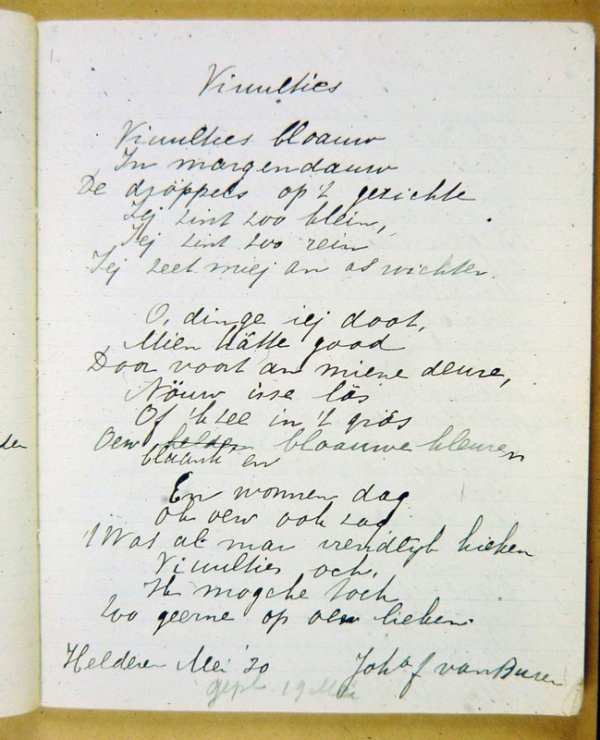 1.
Viuulties
Viuulties bloauw
In margendauw
De dröppels op 't gezichte
Iej zint zoo klein,
Iej zint zoo rein
Iej zeet miej an as wichter.
O, dinge iej doot,
Mien hätte good
Door voort an miene deure,
Nöuw isse lös
Of 'k zee in 't grös
Oew helder bloauwe kleuren
blaank en
En wonnen dag
ok oew ook zag
't Was al mar vrendlijk kieken
Viuulties och,
Ik mogche toch
zoo geerne op oew lieken.
Helderen Mei '20 Joh
van Buren
gepl. 19 Mei